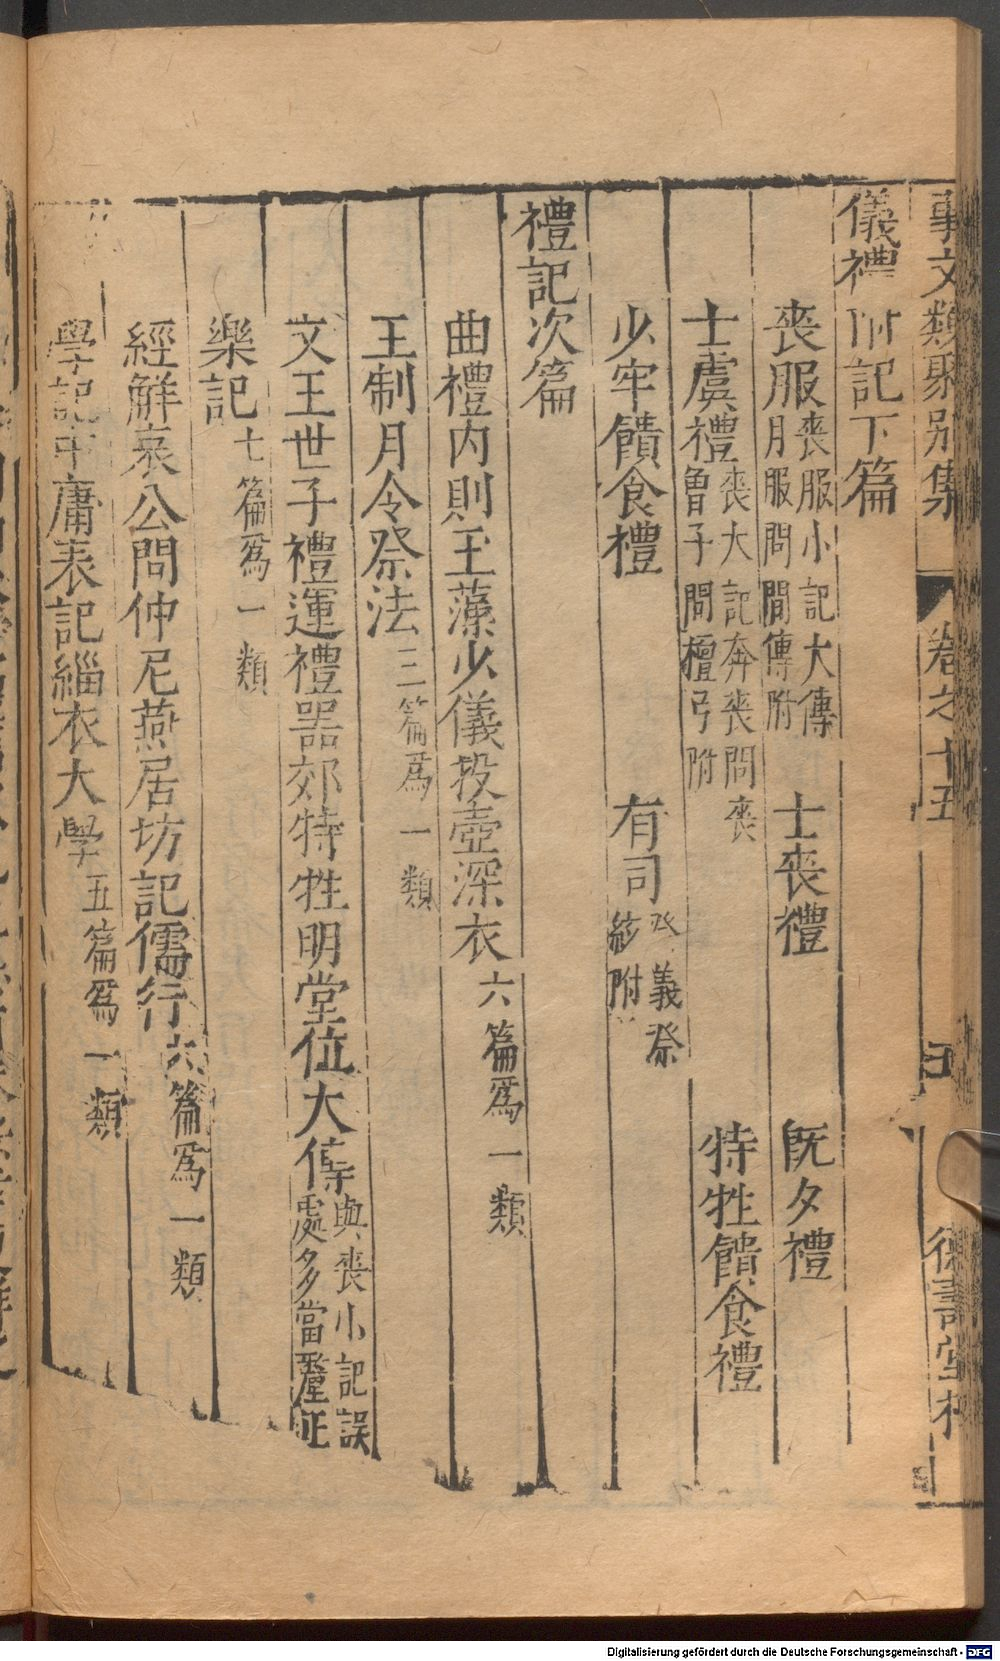 事文類聚別集 卷之十五 五 德壽堂梓
儀禮附記下篇
喪服 喪服小記大傳 月服問間傳附 士喪禮 旣夕禮
士虞禮 喪大記奔喪問喪 曾子問檀弓附 特牲饋食禮
少牢饋食禮 有司 祭義祭 附
禮記次篇
曲禮内則玉藻少儀投壺深衣 六篇爲一類
王制月令祭法 三篇爲一類
文王世子禮運禮噐郊特牲明堂位大傳 與喪小記誤 處多當釐正
樂記 七篇爲一類
經解哀公問仲尼燕居坊記儒行 六篇爲一類
學記中庸表記緇衣大學 五篇爲一類
Digitalisierung gefördert durch die Deutsche Forschungsgemeinschaft - DFG